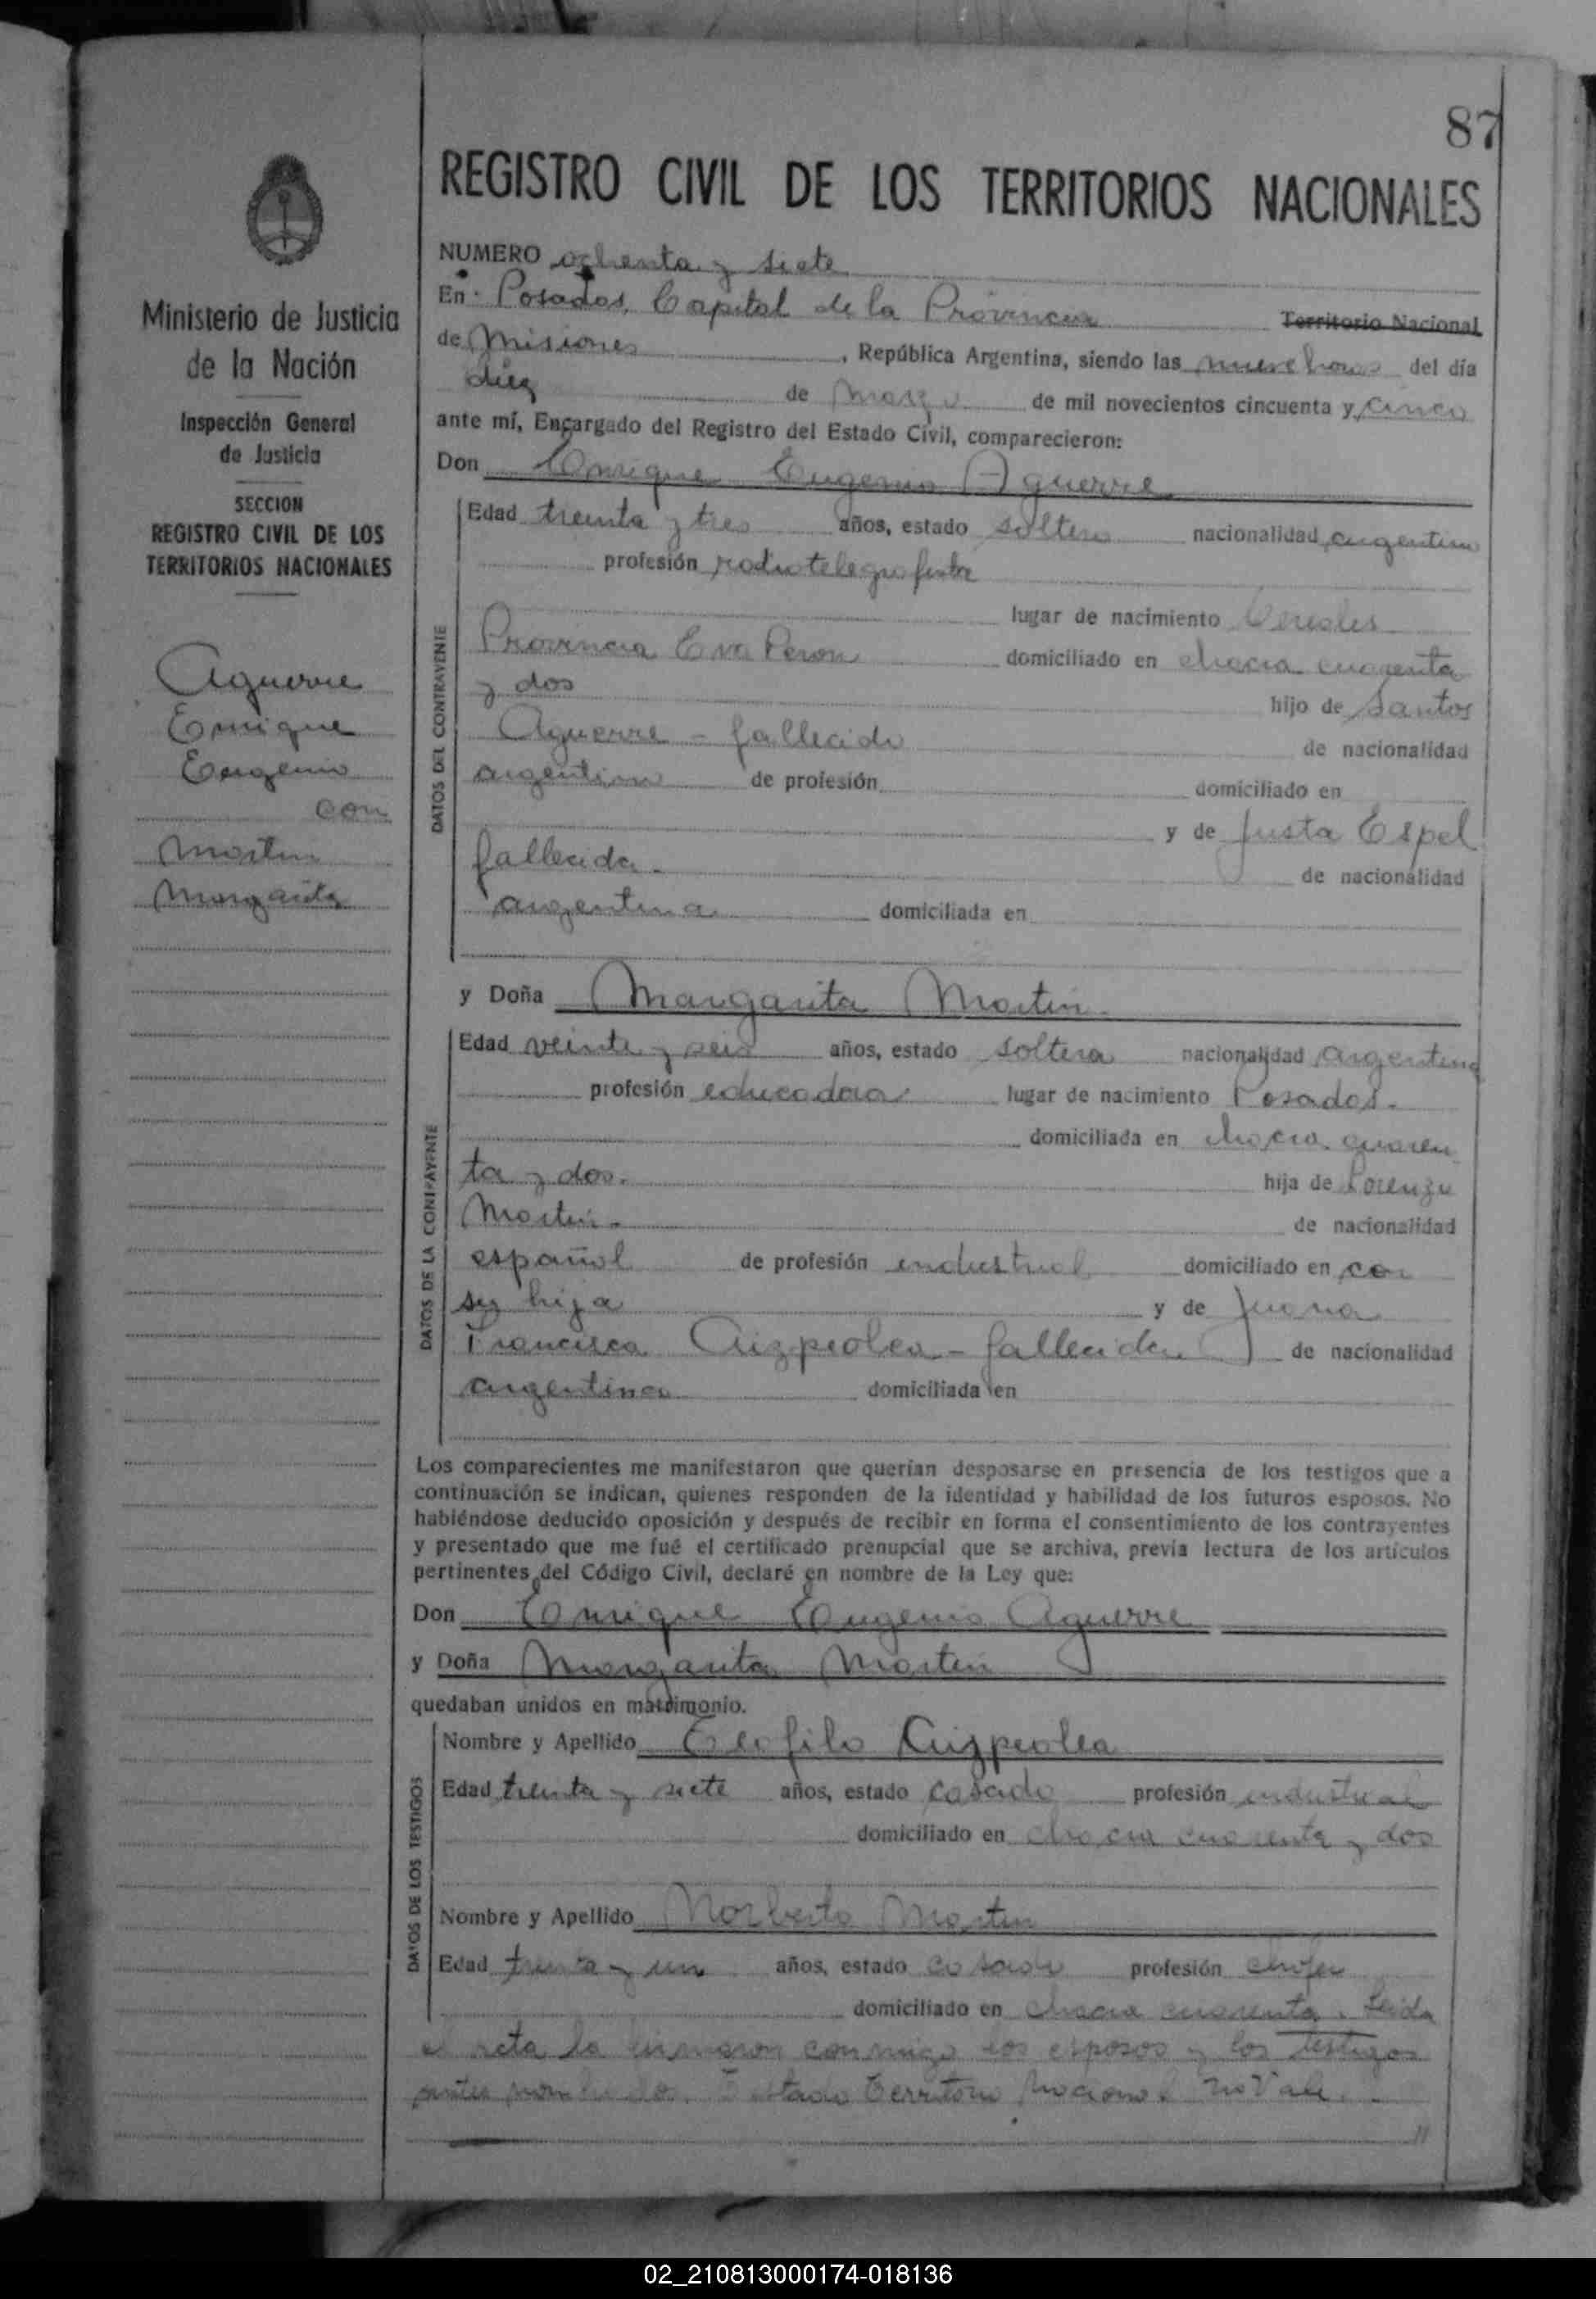 87
REGISTRO CIVIL DE LOS TERRITORIOS NACIONALES
Ministerio de Justicia
de la Nación
Inspección General
de Justicia
SECCION
REGISTRO CIVIL DE LOS
TERRITORIOS NACIONALES
Aguerre
Enrique
Eugenio
con
Martin
Margarita
NUMERO ochenta y siete
En Posadas, Capital de la Provincia Territorio Nacional
de Misiones, República Argentina, siendo las nueve horas del día
diez de Marzo de mil novecientos cincuenta y cinco
ante mí, Encargado del Registro del Estado Civil, comparecieron:
Don Enrique Eugenio Aguerre
DATOS DEL CONTRAYENTE
Edad treinta y tres años, estado soltero nacionalidad argentino
profesión radiotelegrafista
lugar de nacimiento Cereales
Provincia Eva Peron domiciliado en chacra cuarenta
y dos hijo de Santos
Aguerre - fallecido de nacionalidad
argentino de profesión domiciliado en
y de Justa Espel
fallecida. de nacionalidad
argentina domiciliada en
y Doña Margarita Martin.
DATOS DE LA CONTRAYENTE
Edad veinte y seis años, estado soltera nacionalidad argentina
profesión educadora lugar de nacimiento Posadas.
domiciliada en chacra cuaren
ta y dos. hija de Lorenzo
Martin. de nacionalidad
español de profesión industrial domiciliado en con
su hija y de Juana
Francisca Aizpeolea - fallecida de nacionalidad
argentina domiciliada en
Los comparecientes me manifestaron que querían desposarse en presencia de los testigos que a
continuación se indican, quienes responden de la identidad y habilidad de los futuros esposos. No
habiéndose deducido oposición y después de recibir en forma el consentimiento de los contrayentes
y presentado que me fué el certificado prenupcial que se archiva, previa lectura de los artículos
pertinentes del Código Civil, declaré en nombre de la Ley que:
Don Enrique Eugenio Aguerre
y Doña Margarita Martin
quedaban unidos en matrimonio.
DATOS DE LOS TESTIGOS
Nombre y Apellido Teofilo Aizpeolea
Edad treinta y siete años, estado casado profesión industrial
domiciliado en chacra cuarenta y dos
Nombre y Apellido Norberto Martin
Edad treinta y un años, estado casado profesión chofer
domiciliado en chacra cuarenta. Leida
el acta la firmaron conmigo los esposos y los testigos
antes nombrados. Testado Territorio Nacional no Vale.
02_210813000174-018136